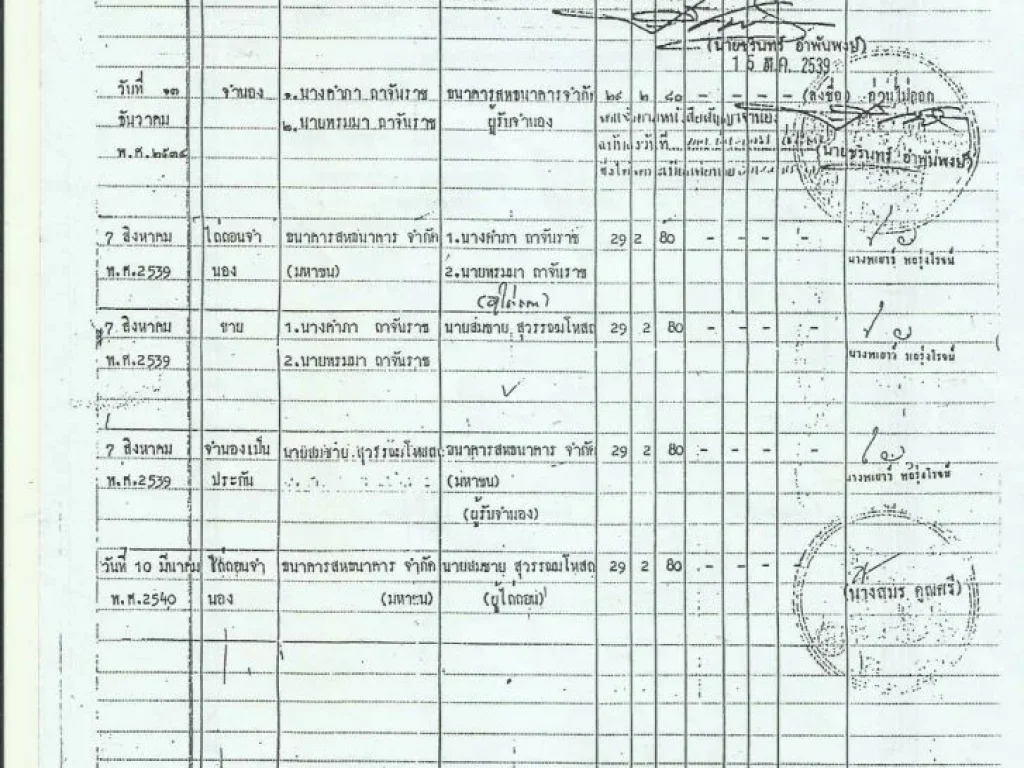 (นายชรินทร์ อำพันพงษ์)
15 ต.ค. 2539
วันที่ ๑๓ จำนอง ๑.นางคำภา ถาจันราช ธนาคารสหธนาคารจำกัด ๒๙ ๒ ๘๐ - - - - (ลงชื่อ) อ่านไม่ออก
ธันวาคม ๒.นายพรมมา ถาจันราช ผู้รับจำนอง
พ.ศ.
(นายชรินทร์ อำพันพงษ์)
7 สิงหาคม ไถ่ถอนจำ ธนาคารสหธนาคาร จำกัด 1.นางคำภา ถาจันราช 29 2 80 - - - -
พ.ศ.2539 นอง (มหาชน) 2.นายพรมมา ถาจันราช นางพเยาว์
(ผู้ไถ่ถอน)
7 สิงหาคม ขาย 1.นางคำภา ถาจันราช นายสมชาย สุวรรณมโหสถ 29 2 80 - - - -
พ.ศ.2539 2.นายพรมมา ถาจันราช นางพเยาว์
7 สิงหาคม จำนองเป็น นายสมชาย สุวรรณมโหสถ ธนาคารสหธนาคาร จำกัด 29 2 80 - - - -
พ.ศ.2539 ประกัน (มหาชน) นางพเยาว์
(ผู้รับจำนอง)
วันที่ 10 มีนาคม ไถ่ถอนจำ ธนาคารสหธนาคาร จำกัด นายสมชาย สุวรรณมโหสถ 29 2 80 - - - -
พ.ศ.2540 นอง (มหาชน) (ผู้ไถ่ถอน) (นางสมร คูณศรี)